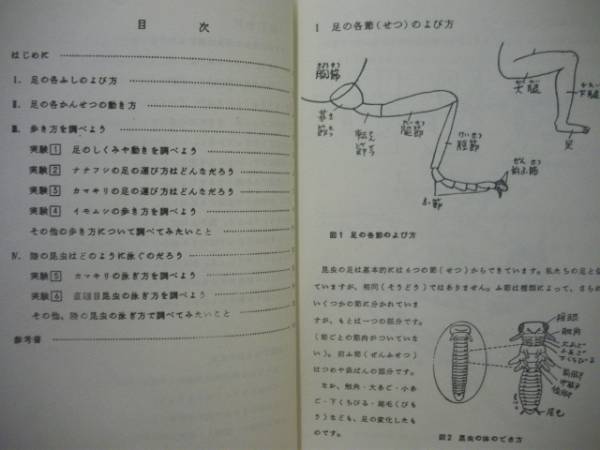 目 次
はじめに
Ⅰ. 足の各ふしのよび方
Ⅱ. 足の各かんせつの動き方
Ⅲ. 歩き方を調べよう
実験1 足のしくみや動きを調べよう
実験2 ナナフシの足の運び方はどんなだろう
実験3 カマキリの足の運び方はどんなだろう
実験4 イモムシの歩き方を調べよう
その他の歩き方について調べてみたいこと
Ⅳ. 陸の昆虫はどのように泳ぐのだろう
実験5 カマキリの泳ぎ方を調べよう
実験6 直翅目昆虫の泳ぎ方を調べよう
その他、陸の昆虫の泳ぎ方で調べてみたいこと
参考書
Ⅰ 足の各節(せつ)のよび方
胸節
基節
転節
腿節
けいせつ
脛節
ぜんふせつ
前ふ節
ふ節
大腿
下腿
足
図1 足の各節のよび方
昆虫の足は基本的には6つの節(せつ)からできています。私たちの足と
ていますが、相同(そうどう)ではありません。ふ節は種類によって、さら
いくつかの節に分かれていま
すが、もとは一つの部分です。
(節ごとの筋肉がついていな
い)。前ふ節(ぜんふせつ)
はつめや裏ばんの部分です。
なお、触角・大あご・小あ
ご・下くちびる・尾毛(びも
う)なども、足の変化したも
のです。
触角
大あご
小あご
下くちびる
前脚
中脚
後脚
尾毛
図2 昆虫の体のでき方